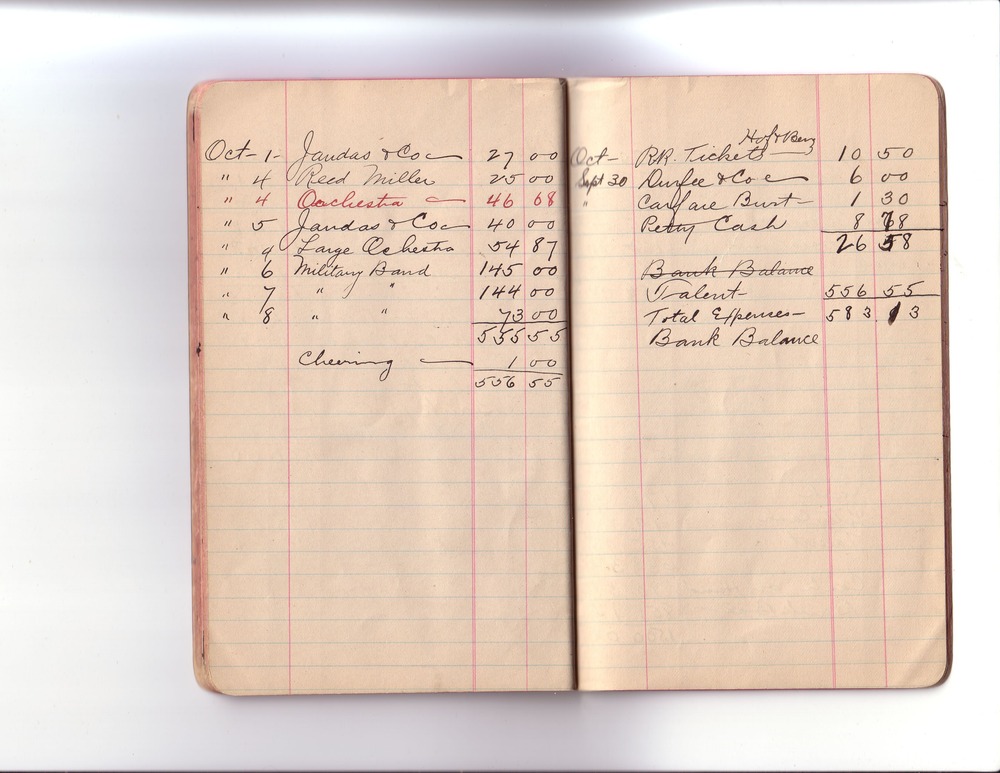 Oct- 1- Jandas & Co 27 00
" 4 Reed Miller 25 00
" 4 Oachestra 46 68
" 5 Jandas & Co 40 00
" 9 Large Ochestra 54 87
" 6 Military Band 145 00
" 7 " " 144 00
" 8 " " 73 00
555 55
Cheering 1 00
556 55
Hof & Berg
Oct- RR. Tickets 10 50
Sept 30 Durfee & Co 6 00
" Carfare Burt- 1 30
Petty Cash 8 78
26 58
Bank Balance
Talent- 556 55
Total Expenses- 583 13
Bank Balance